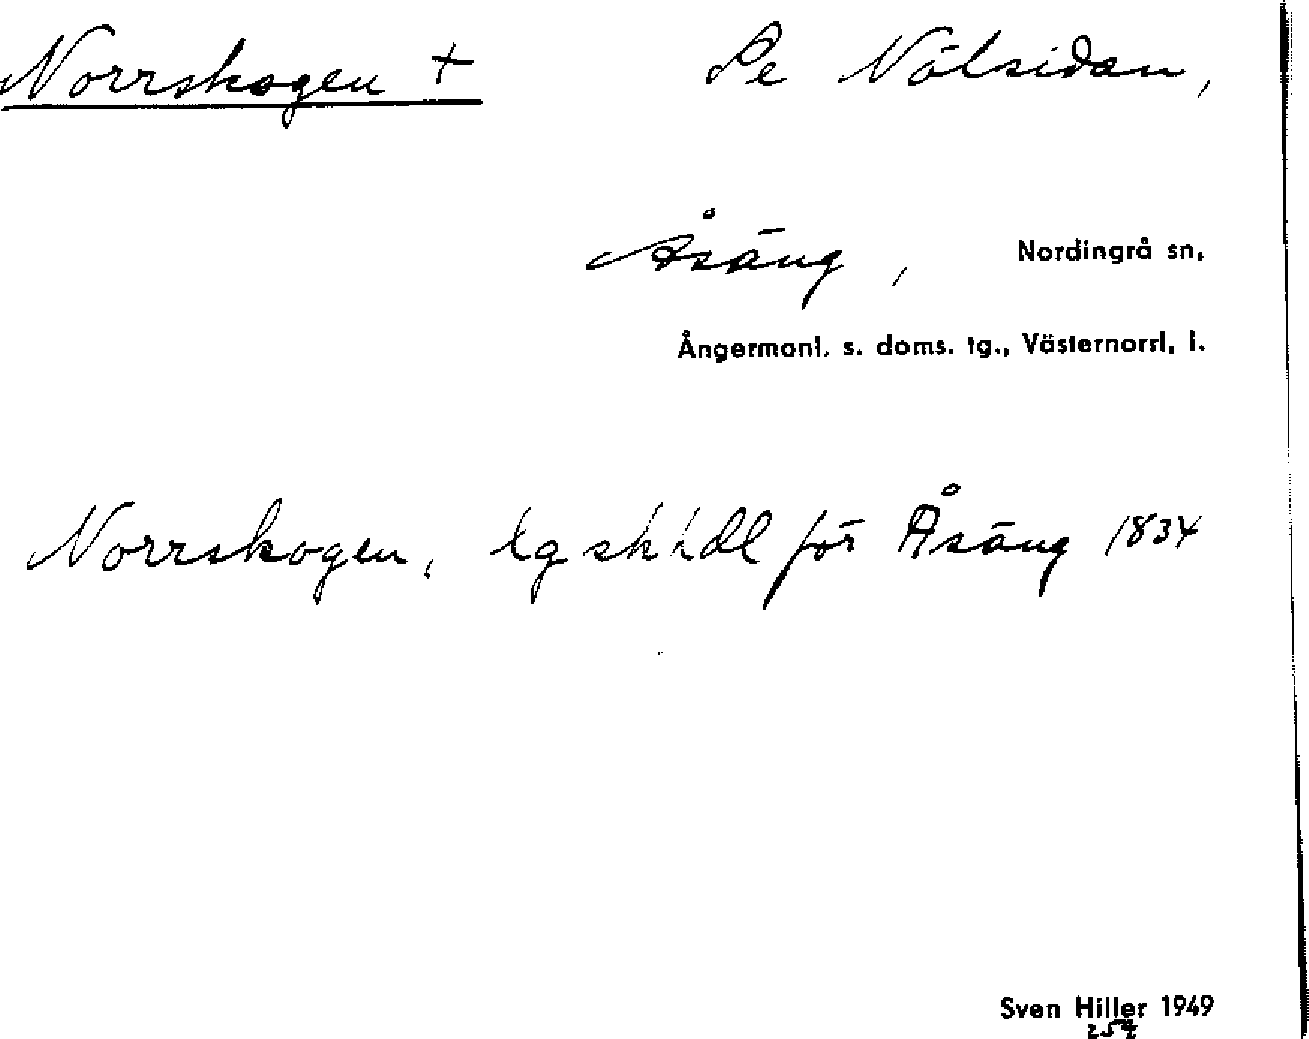 Norrskogen + Se Nölsidan,
Åsäng, Nordingrå sn,
Ångermanl. s. doms. tg., Västernorrl. l.
Norrskogen, lgskhdl för Åsäng 1834
Sven Hiller 1949
257